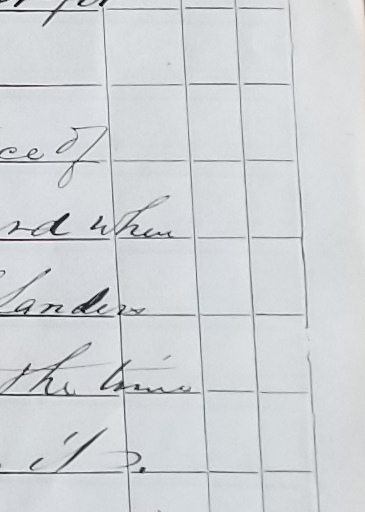 ce of
nd when
Sanders
the time